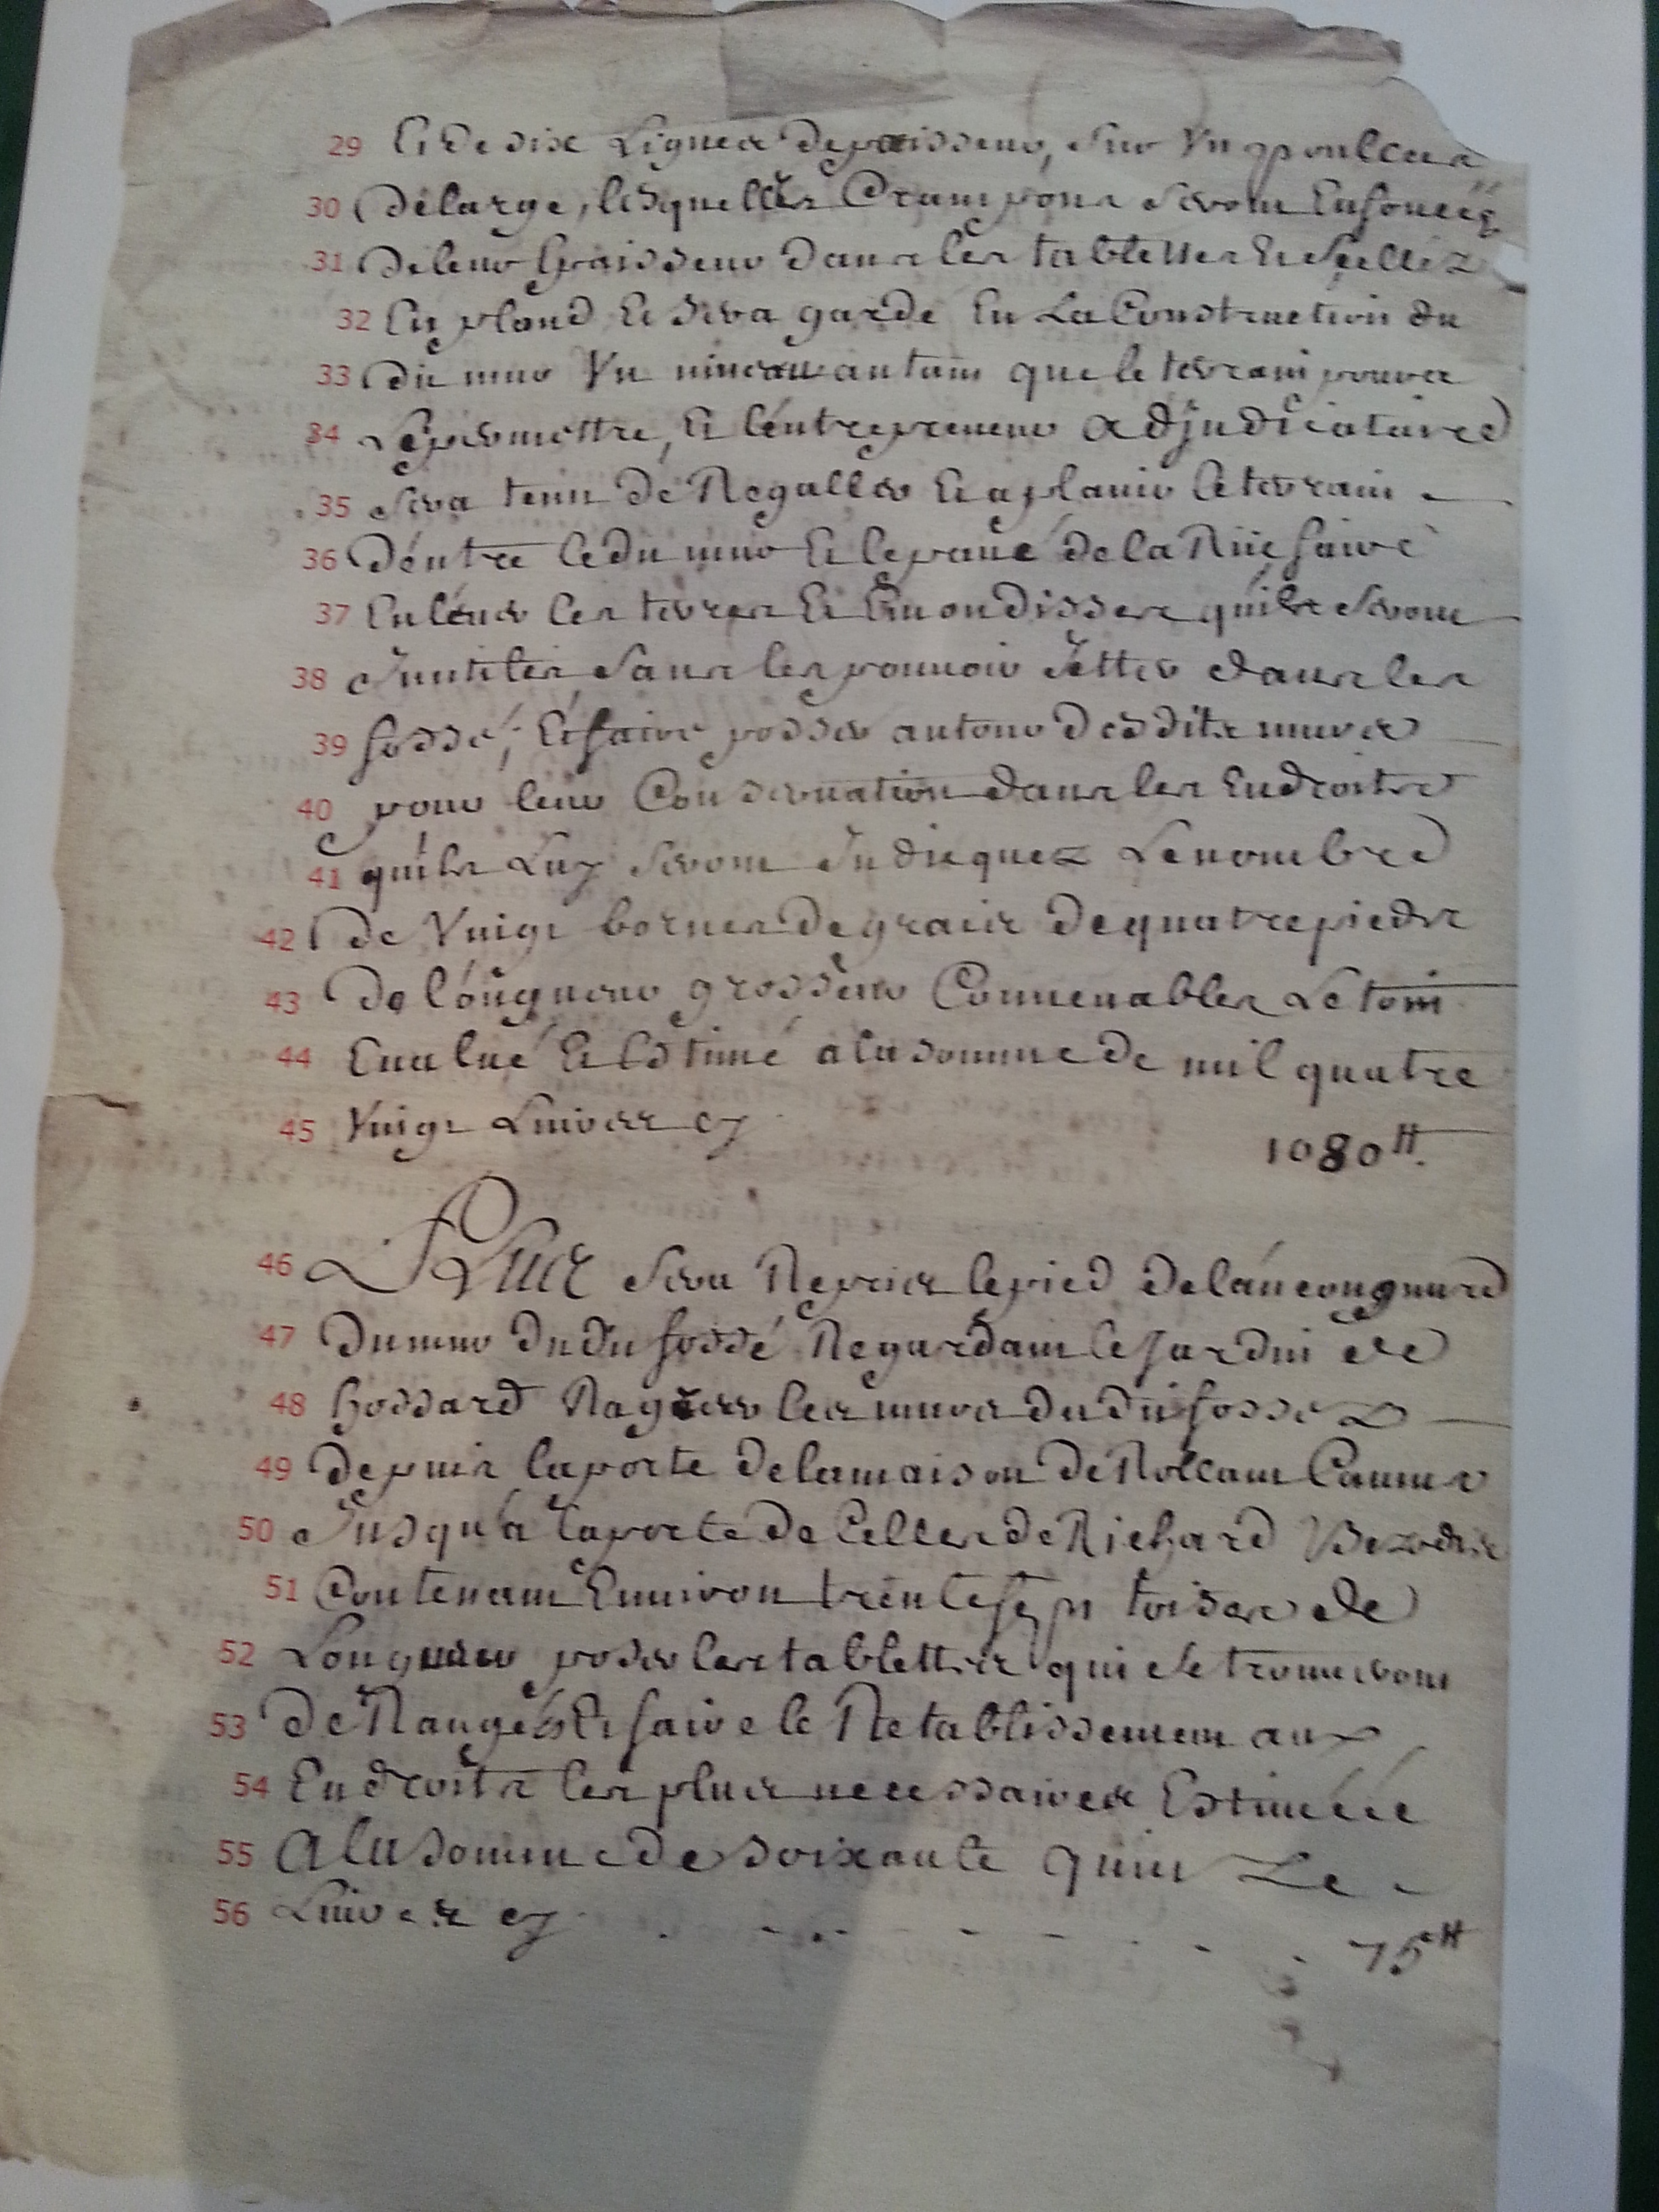 29 Et de six Lignes depaisseur, sur Un poulce
30 Delarge, lesquelles Crampons seront Enfoncéz
31 De leur Epaisseur dans les tablettes Et scelléz
32 En plond Et sera gardé En La Construction du
33 dit mur Un niveau autant que le terrain pourra
34 Le permettre, Et l'entrepreneur adjudicataire
35 sera tenu de Regaller Et aplanir le terrain
36 D'entre ledit mur Et le pavé de la Rüe faire
37 Enlever les terres Et Emondisses quils seront
38 Inutiles sans les pouvoir Jetter dans les
39 fossé, Et faire posser autour desdits murs
40 pour leur Conservation dans les Endroits
41 quils Luy seront Indiquez Le nombre
42 De Vingt bornes de grais de quatre pieds
43 De longueur grosseur Convenables Le tout
44 Evalué Et Estimé a la somme de mil quatre
45 Vingt Livres cy 1080 ₶.
46 Plus sera Repris le pied de láncongnurе
47 Du mur dudit fossé Regardant le Jardin de
48 hossard Ragréer les murs dudit fossez
49 Depuis la porte de la maison de Rolland
50 Jusqu'a la porte de Cellier de Richard
51 Contenant Environ trente sept toises de
52 Longueur poser les tablettes qui se trouveront
53 De Rangés Et faire le Retablissement aux
54 Endroits les plus necessaires Estimééé
55 A la somme de soixante quinze
56 Livres cy . . . 75 ₶